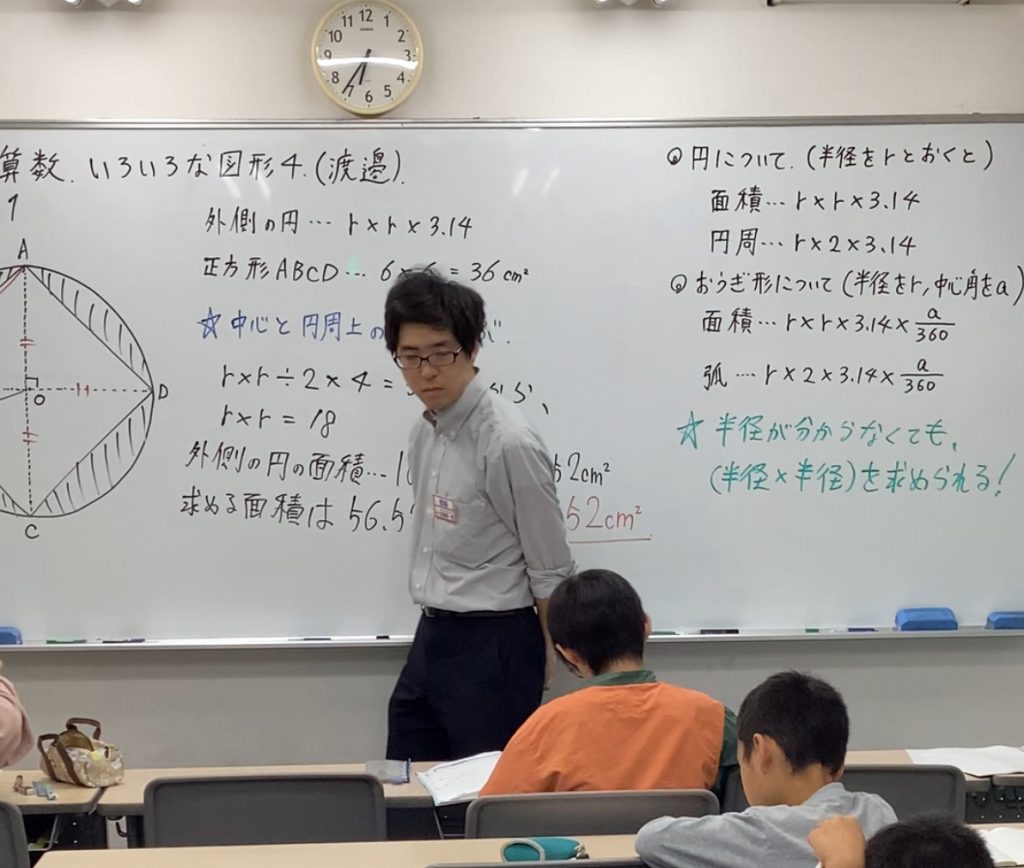 12 1 2 3 4 5 6 7 8 9 10 11
算数. いろいろな図形4.(渡邉).
1
A
O
D
C
外側の円… r×r×3.14
正方形ABCD… 6×6=36cm²
☆中心と円周上の
r×r÷2×4=
r×r=18
外側の円の面積…
52cm²
求める面積は 56.5
52cm²
円について.(半径をrとおくと)
面積…r×r×3.14
円周…r×2×3.14
おうぎ形について(半径をr,中心角をa)
面積…r×r×3.14×a/360
弧…r×2×3.14×a/360
☆半径が分からなくても,
(半径×半径)を求められる!